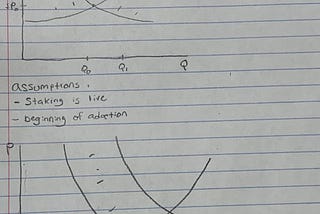 P₀
Q₀ Q₁ Q
Assumptions:
- Staking is live
- beginning of adoption
P